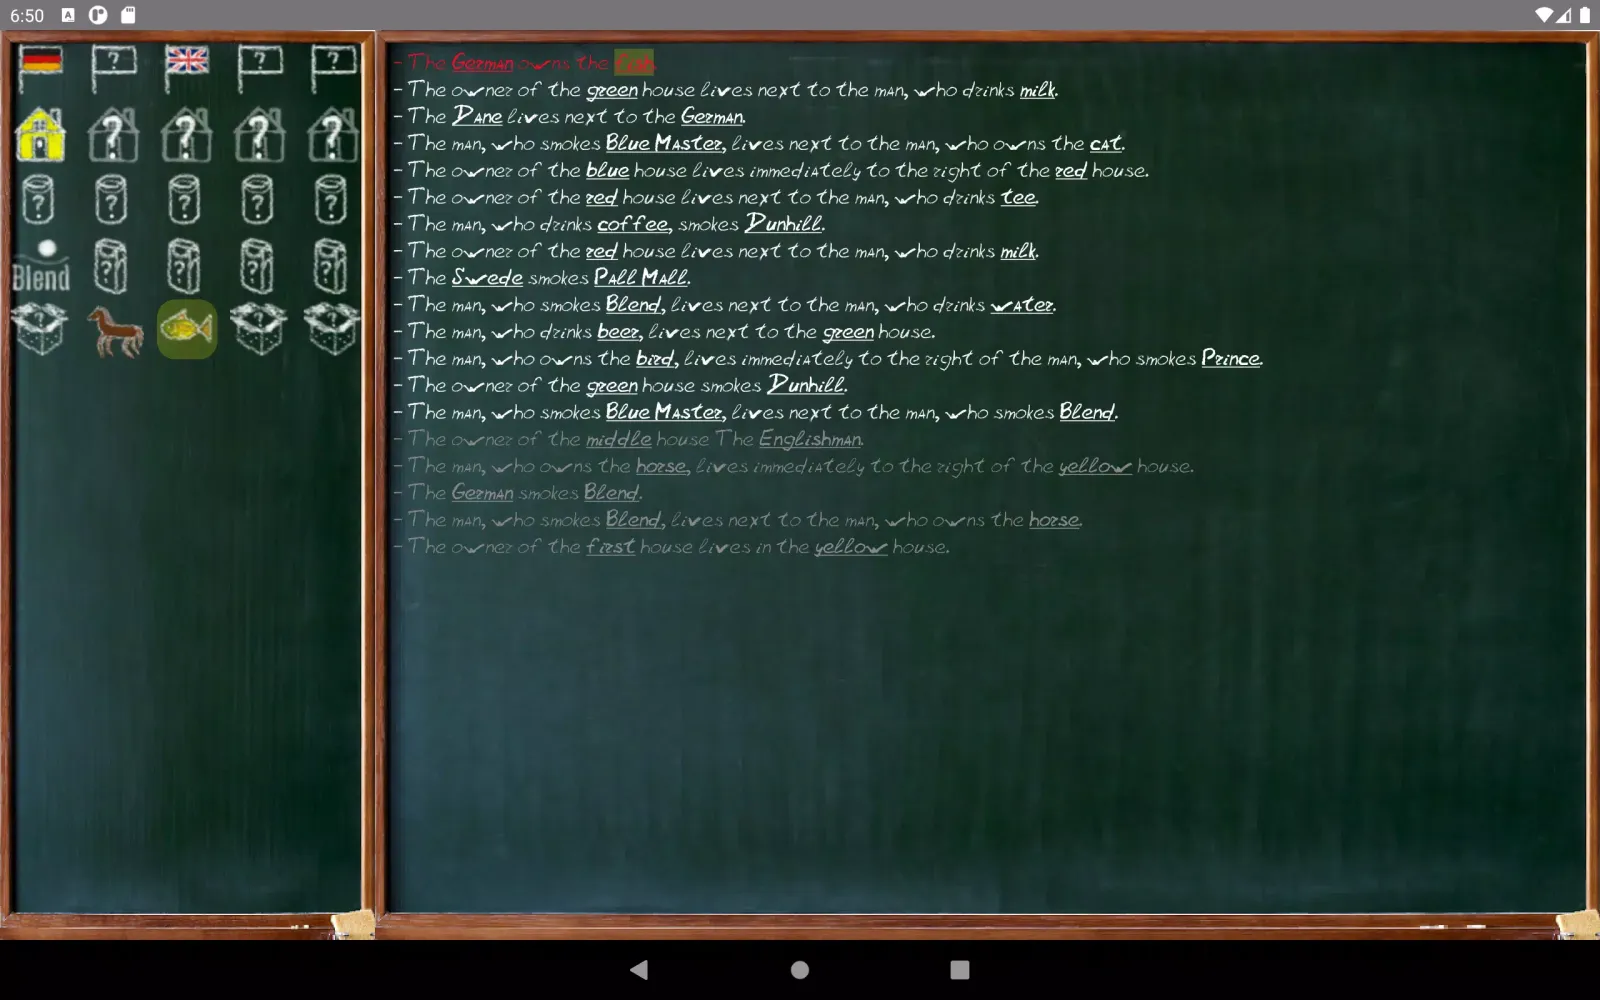 6:50
Blend
- The German owns the fish.
- The owner of the green house lives next to the man, who drinks milk.
- The Dane lives next to the German.
- The man, who smokes Blue Master, lives next to the man, who owns the cat.
- The owner of the blue house lives immediately to the right of the red house.
- The owner of the red house lives next to the man, who drinks tee.
- The man, who drinks coffee, smokes Dunhill.
- The owner of the red house lives next to the man, who drinks milk.
- The Swede smokes Pall Mall.
- The man, who smokes Blend, lives next to the man, who drinks water.
- The man, who drinks beer, lives next to the green house.
- The man, who owns the bird, lives immediately to the right of the man, who smokes Prince.
- The owner of the green house smokes Dunhill.
- The man, who smokes Blue Master, lives next to the man, who smokes Blend.
- The owner of the middle house The Englishman.
- The man, who owns the horse, lives immediately to the right of the yellow house.
- The German smokes Blend.
- The man, who smokes Blend, lives next to the man, who owns the horse.
- The owner of the first house lives in the yellow house.